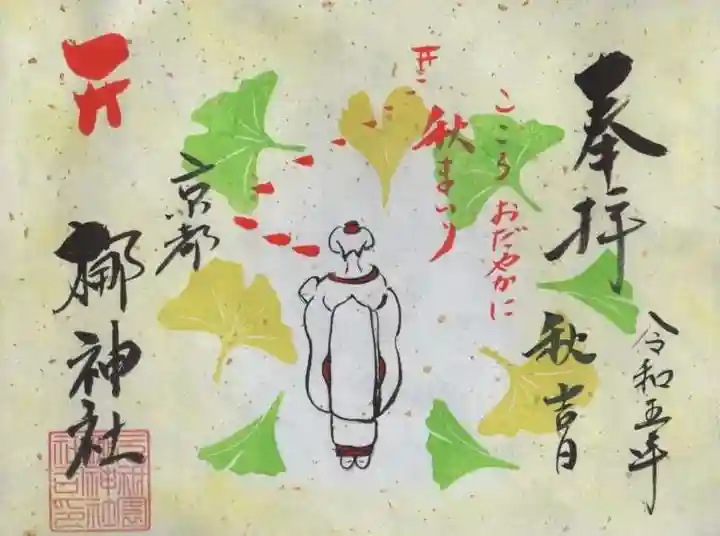 奉拝
令和五年
秋吉日
こころ おだやかに
秋まいり
京都
梛神社